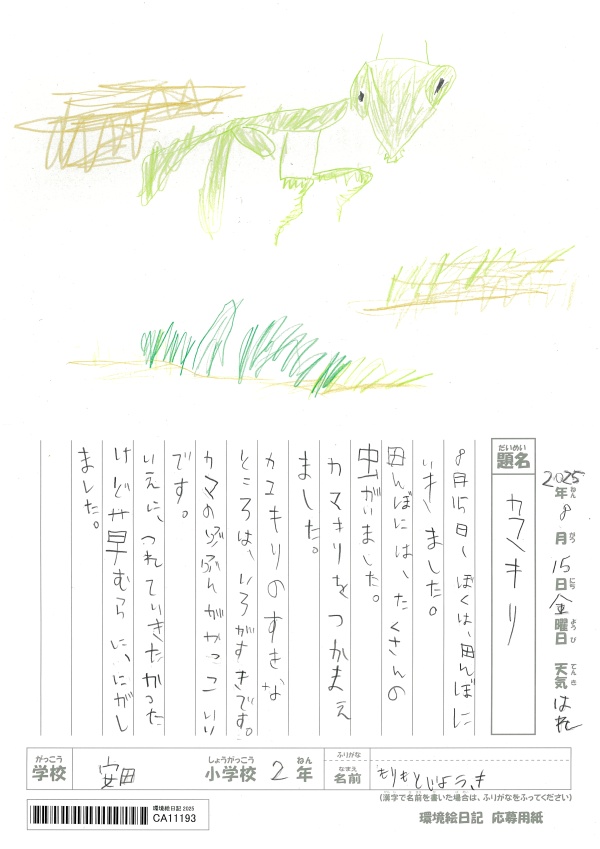 2025年8月15日金曜日 天気はれ
ねん がつ にち ようび てんき
だいめい
題名
カマキリ
8月15日、ぼくは、田んぼに
いきました。
田んぼには、たくさんの
虫がいました。
カマキリをつかまえ
ました。
カマキリのすきな
ところは、いろがすきです。
カマのぶぶんがかっこいい
です。
いえに、つれていきたかった
けど草むらに、にがし
ました。
がっこう
学校
安田
しょうがっこう
小学校
2
ねん
年
ふりがな
なまえ
名前
もりもとじょうき
(漢字で名前を書いた場合は、ふりがなをふってください)
環境絵日記 2025
CA11193
環境絵日記 応募用紙